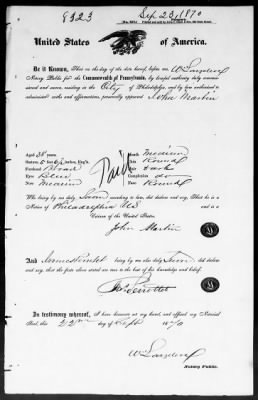 8323
Sep 23, 1870
United States of America.
Be it Known, That on the day of the date hereof, before me,
Notary Public for the Commonwealth of Pennsylvania, by lawful authority duly commissioned
and sworn, residing in the City of Philadelphia, and by law authorized to
administer oaths and affirmations, personally appeared John Martin
Aged 38 years
Mouth medium
Chin Round
Forehead Broad
Hair Dark
Eyes Blue
Complexion do
Nose medium
Face Round
Paid
Who being by me duly Sworn according to law, did declare and say, That he is a
Native of Philadelphia
Citizen of the United States.
John Martin
And
being by me also duly Sworn did declare
and say, that the facts above stated are true to the best of his knowledge and belief.
In testimony whereof, I have hereunto set my hand, and affixed my Notarial
Seal, this 22nd day of Sept 1870
Notary Public.